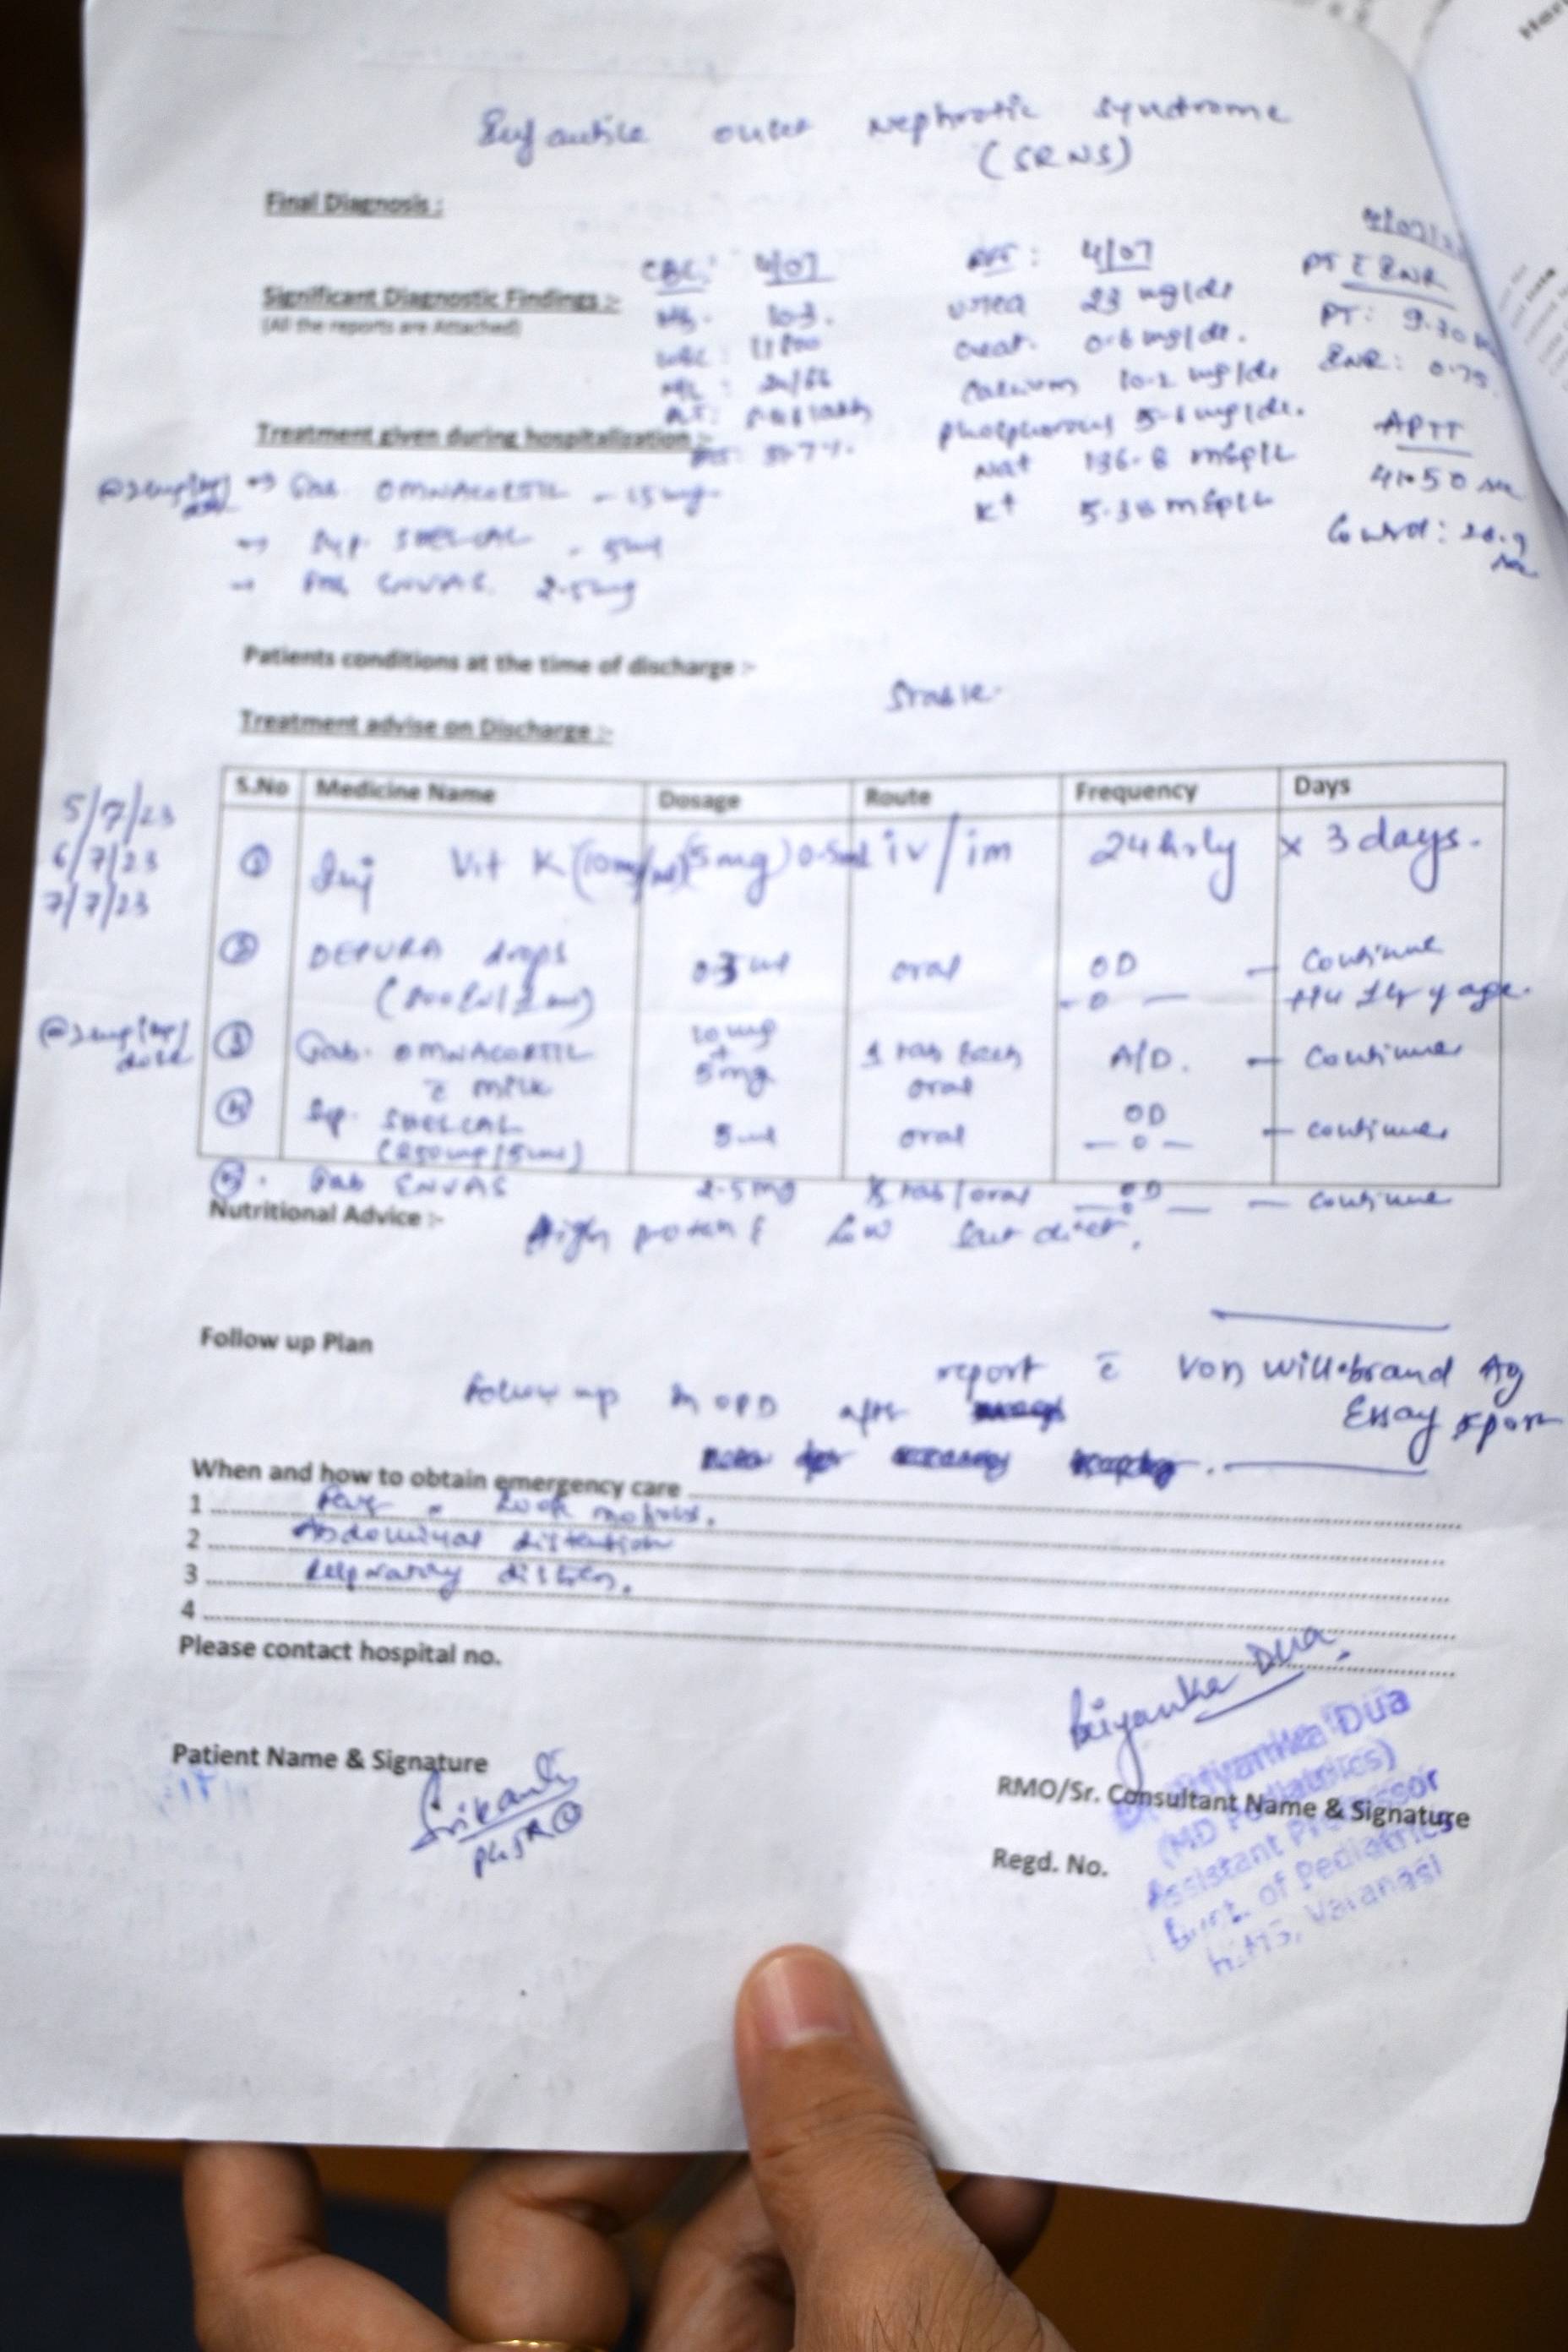 Infantile onset Nephrotic Syndrome
(SRNS)
Final Diagnosis :
Significant Diagnostic Findings :-
(All the reports are Attached)
CBC: 4/07
Hb. 10.3.
: 11800
: 37.7%.
RFT : 4/07
Urea 23 mg/dl
Creat. 0.6 mg/dl.
Calcium 10.2 mg/dl
Phosphorous 5.6 mg/dl.
Na+ 136.8 mEq/L
K+ 5.38 mEq/L
PT c INR
PT: 9.30
INR: 0.75
APTT
41.50 sec
Control:
sec
Treatment given during hospitalization :-
@2mg/kg/ → Tab. OMNACORTIL - 15mg
→ Syp. SHELCAL - 5ml
→ Tab ENVAS 2.5mg
Patients conditions at the time of discharge :-
Stable.
Treatment advise on Discharge :-
S.No Medicine Name Dosage Route Frequency Days
5/7/23
6/7/23
7/7/23
① Inj Vit K (10mg/ml) (5mg) 0.5ml iv/im 24 hrly x 3 days.
② DEPURA drops oral OD - Continue
till 1 yr of age.
@2mg/kg/ dose ③ Tab. OMNACORTIL 10mg + 5mg 1 tab each oral A/D. - Continue
c milk
④ Syp. SHELCAL 5ml oral OD - Continue
(250mg/5ml)
⑤. Tab ENVAS 2.5mg tab/oral OD - Continue
Nutritional Advice :-
High protein & Low salt diet.
Follow up Plan
Follow up in OPD after report c Von Willebrand Ag
Essay
When and how to obtain emergency care
1 Fever, Loose motions.
2 Abdominal distention
3 Respiratory distress.
4
Please contact hospital no.
Patient Name & Signature
Srikanth
Priyanka Dua
Priyanka Dua
(MD Pediatrics)
RMO/Sr. Consultant Name & Signature
Assistant Professor
Regd. No.
Dept. of Pediatrics
Varanasi